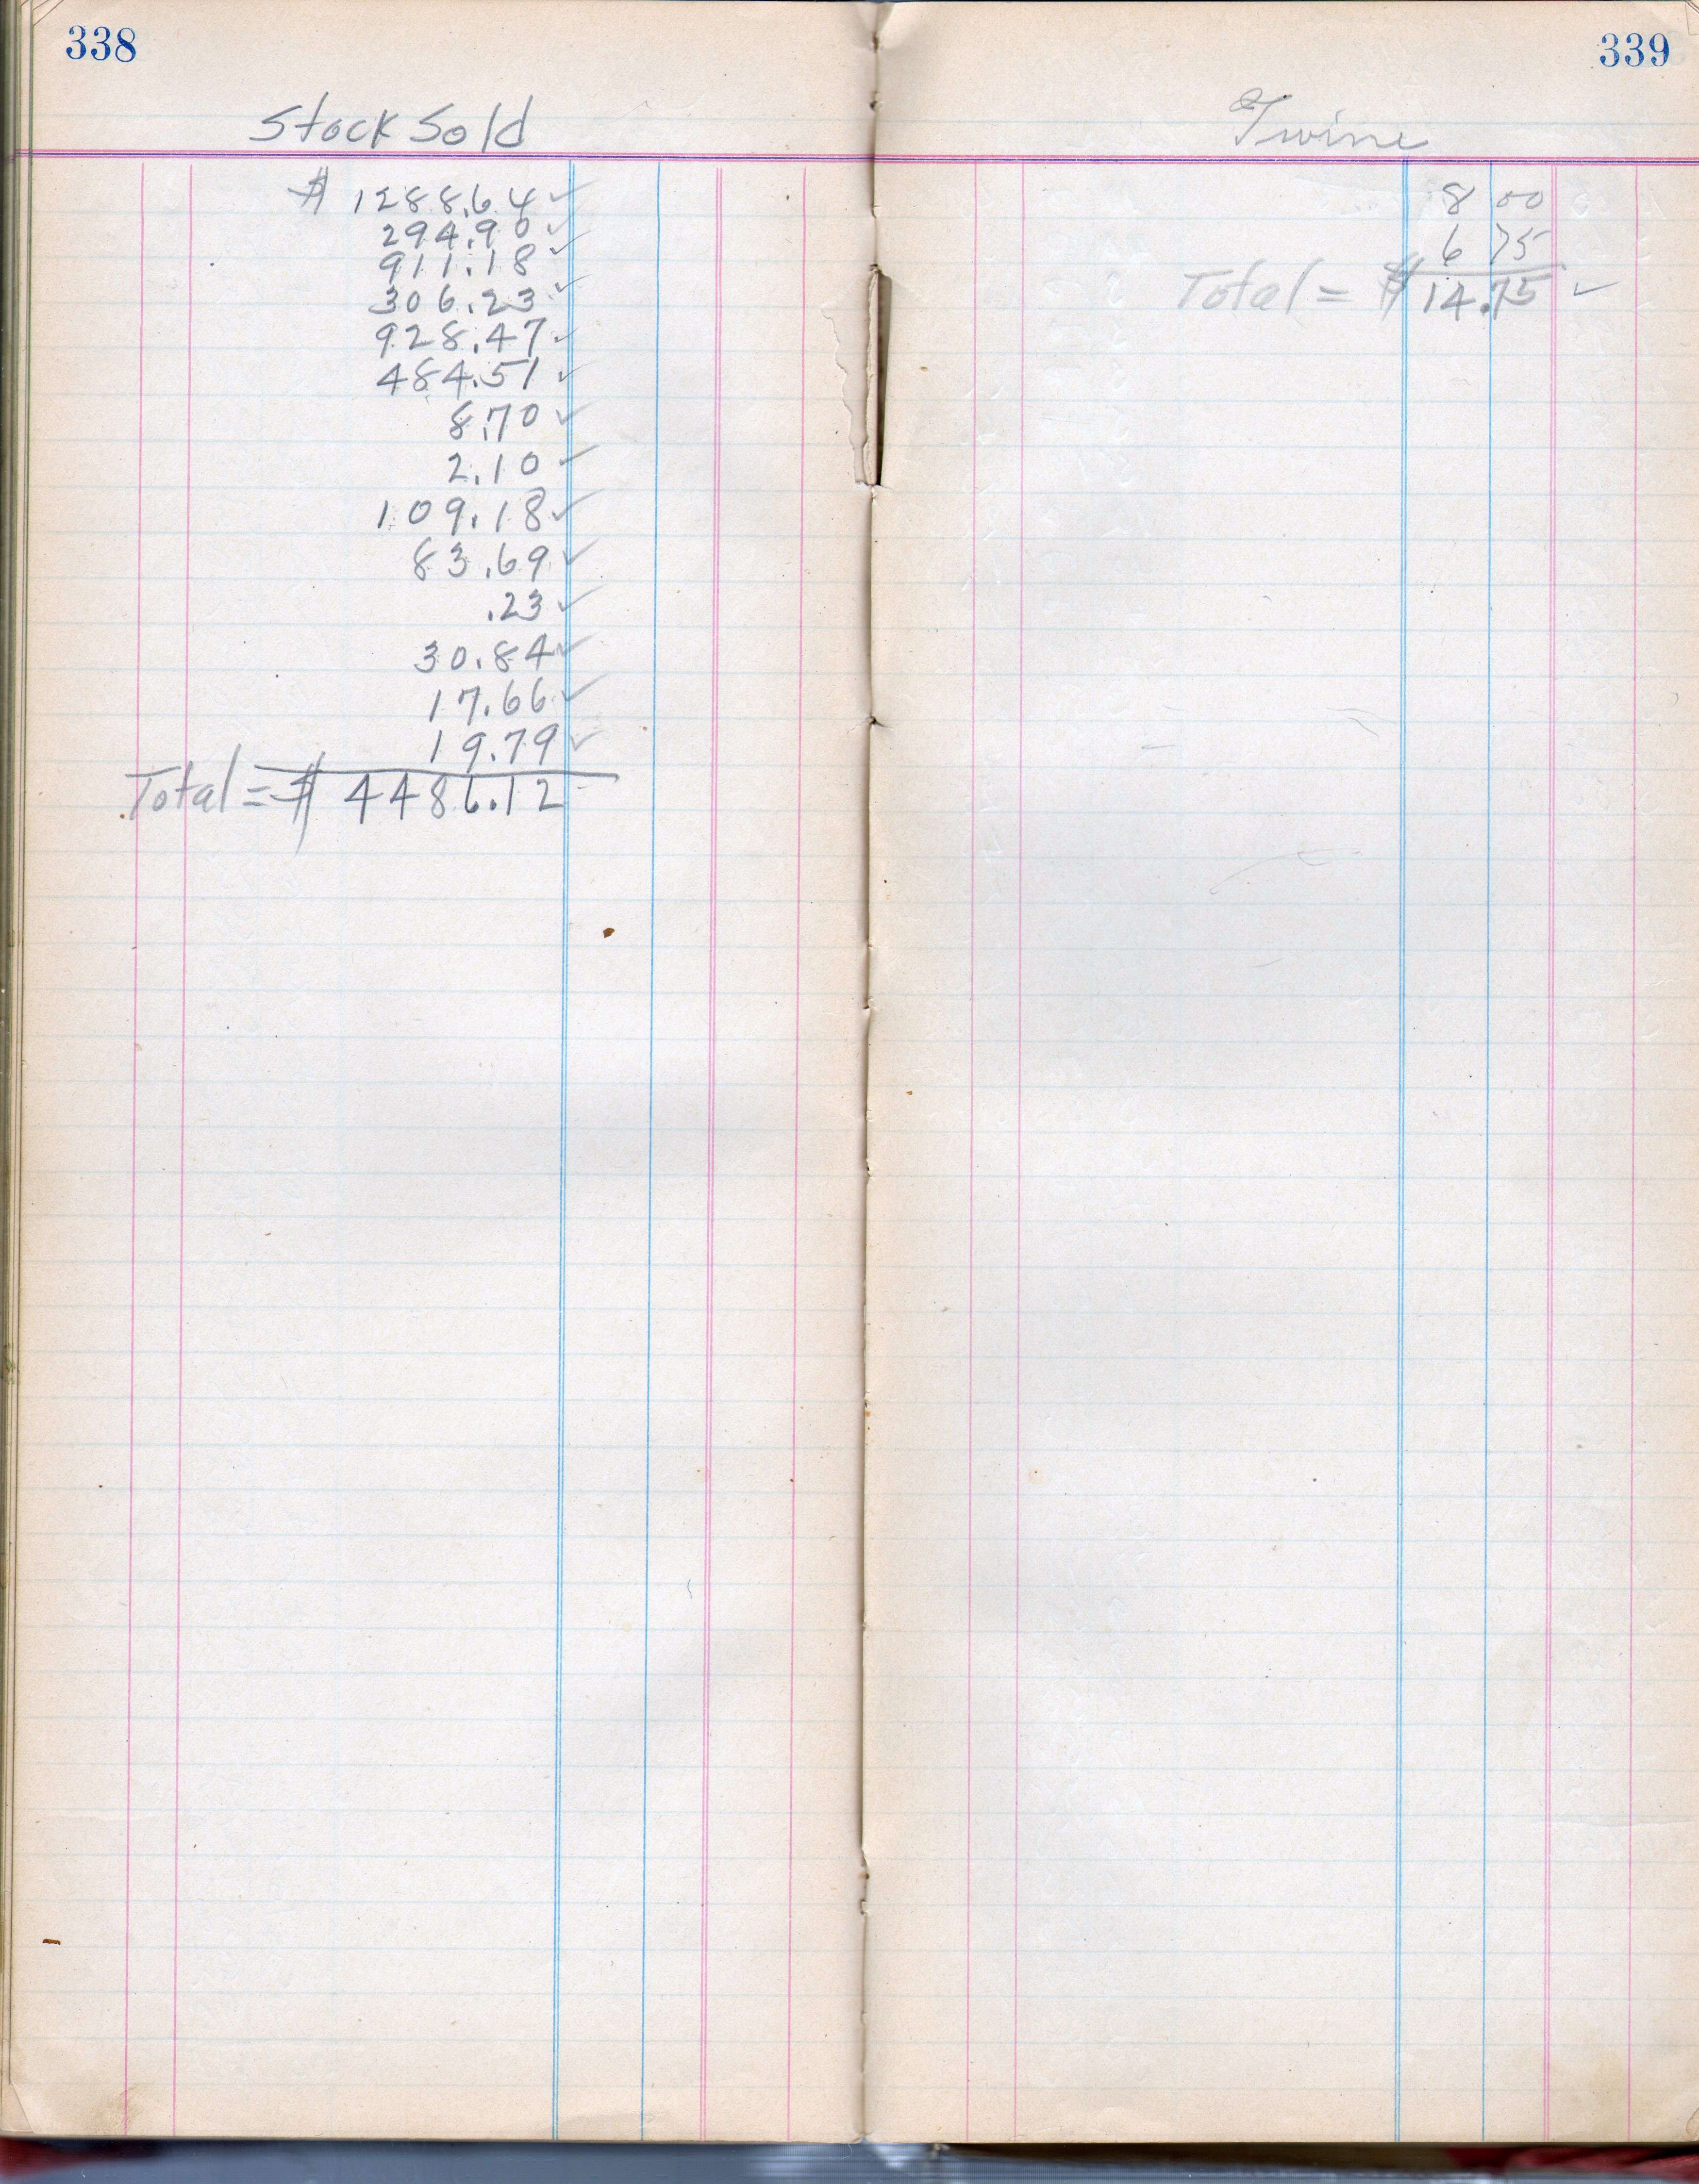 338
Stock Sold
$ 1288.64 ✓
294.90 ✓
911.18 ✓
306.23 ✓
928.47 ✓
484.51 ✓
8.70 ✓
2.10 ✓
109.18 ✓
83.69 ✓
.23 ✓
30.84 ✓
17.66 ✓
19.79 ✓
Total = $ 4486.12
339
Twine
8 00
6 75
Total = $ 14.75 ✓